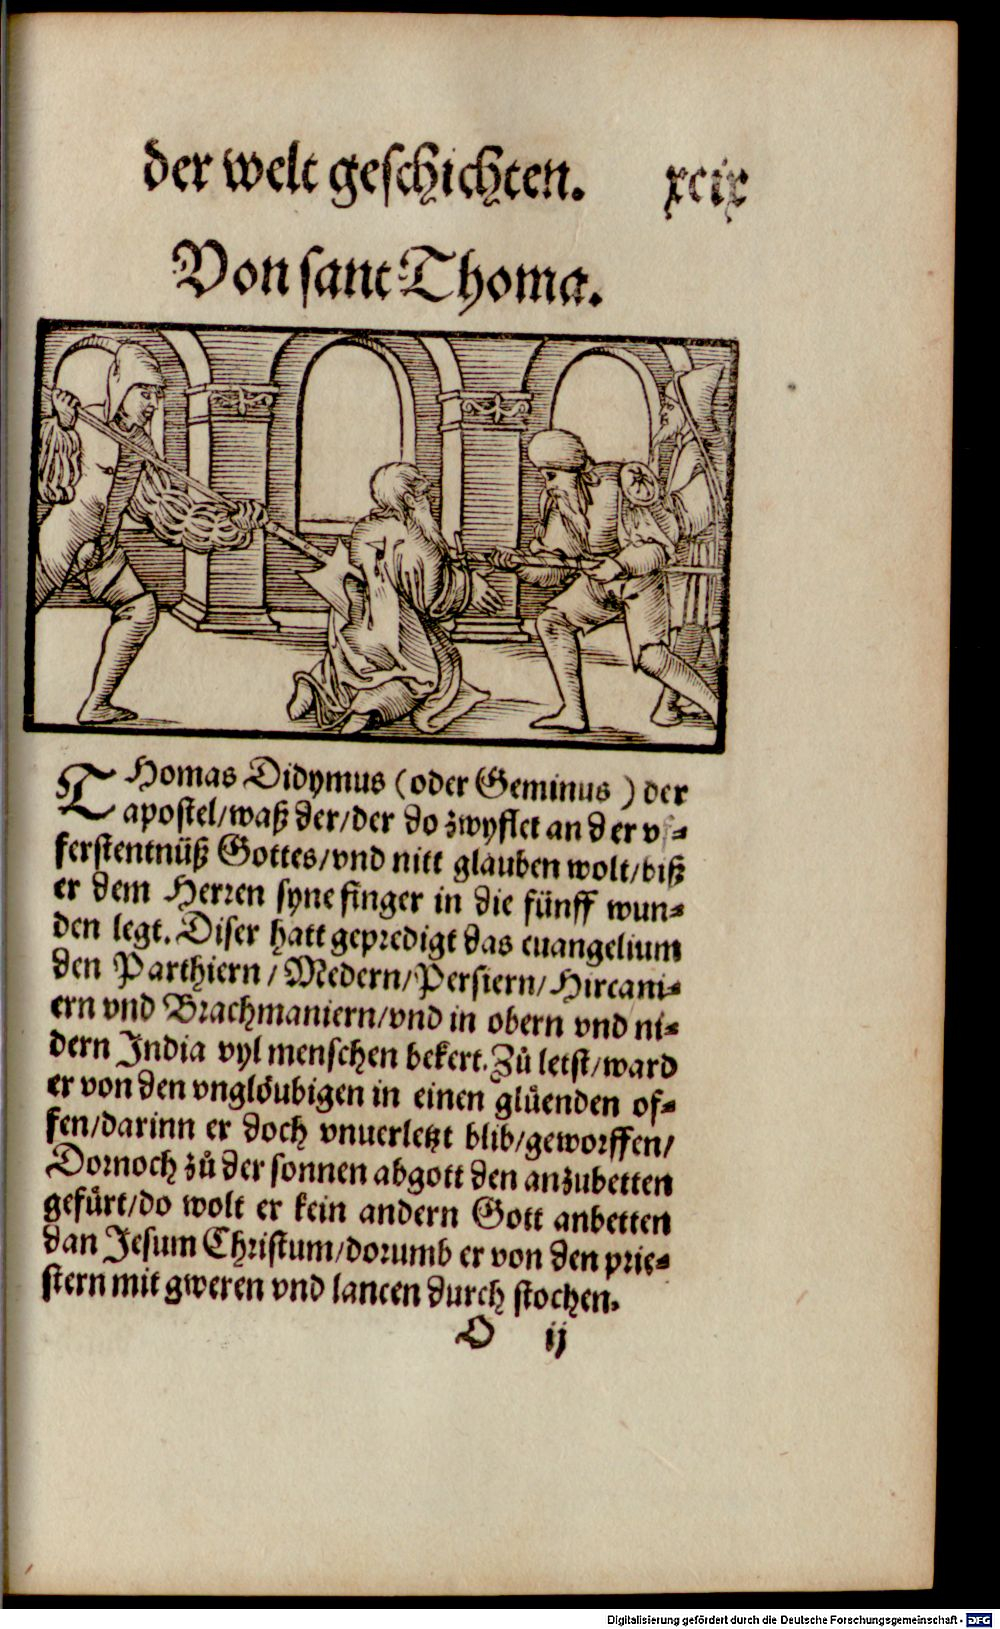 der welt geschichten. xcix
Von sant Thoma.
THomas Didymus (oder Geminus) der
apostel/waß der/der do zwyflet an der vf⸗
ferstentnüß Gottes/vnd nitt glauben wolt/biß
er dem Herren syne finger in die fünff wun⸗
den legt. Diser hatt gepredigt das euangelium
den Parthiern/Medern/Persiern/Hircani⸗
ern vnd Brachmaniern/vnd in obern vnd ni⸗
dern India vyl menschen bekert. Zů letst/ward
er von den vnglöubigen in einen glüenden of⸗
fen/darinn er doch vnuerletzt blib/geworffen/
Dornoch zů der sonnen abgott den anzubetten
gefürt/do wolt er kein andern Gott anbetten
dan Jesum Christum/dorumb er von den prie⸗
stern mit gweren vnd lancen durch stochen.
O ij
Digitalisierung gefördert durch die Deutsche Forschungsgemeinschaft - DFG